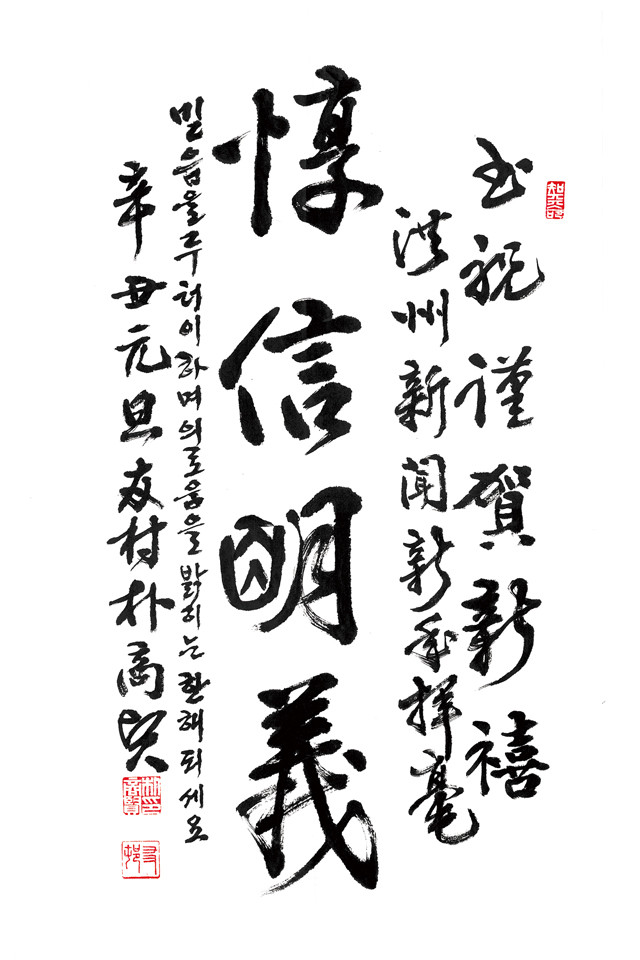 祝謹賀新禧
洪州新聞新年揮毫
惇信明義
믿음을 두터이 하며 의로움을 밝히는 한해 되세요
辛丑元旦友村朴商賢
朴商賢印
友村